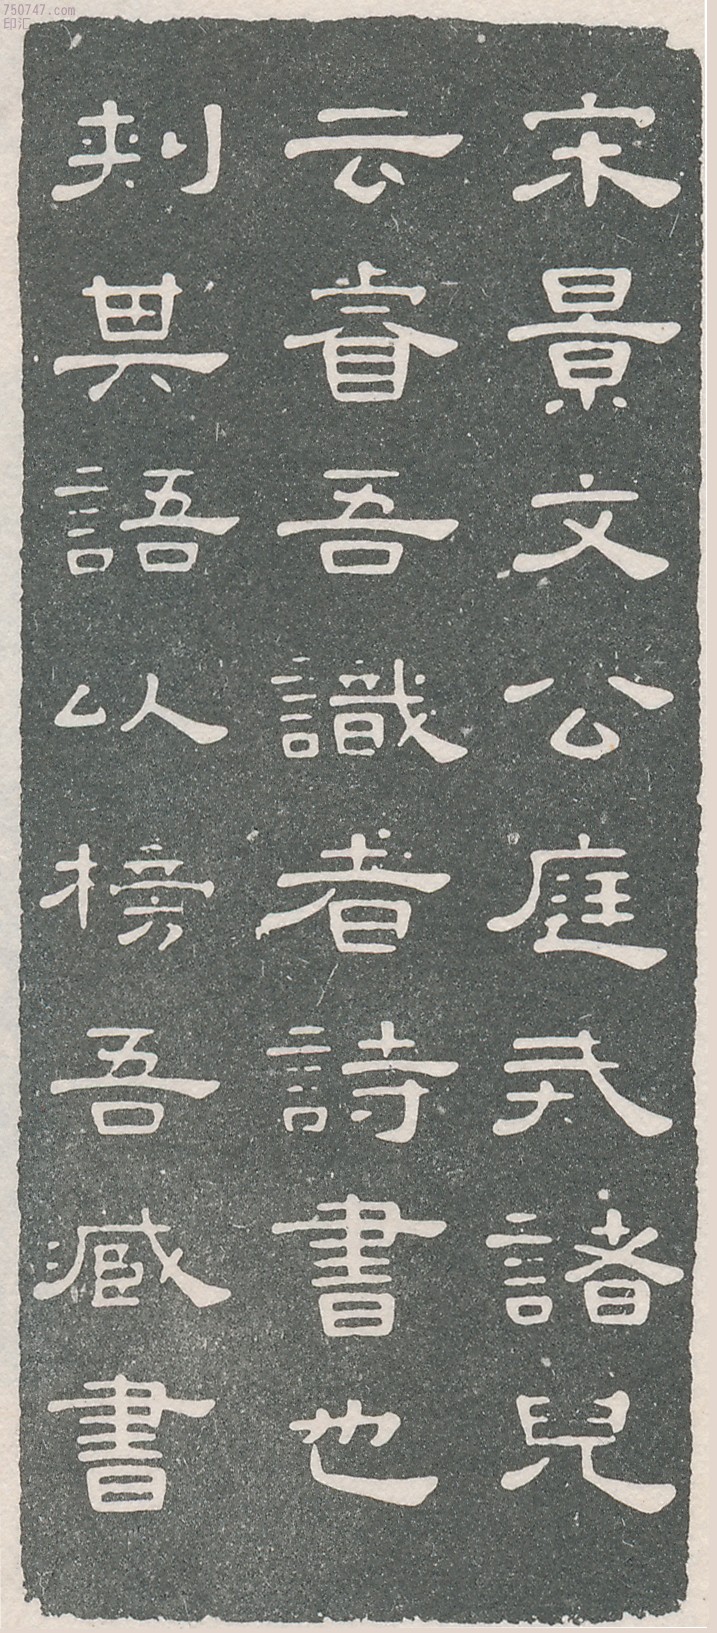 750747.com
印汇
宋景文公庭戒諸兒
云睿吾識者詩書也
刾其語以榜吾臧書